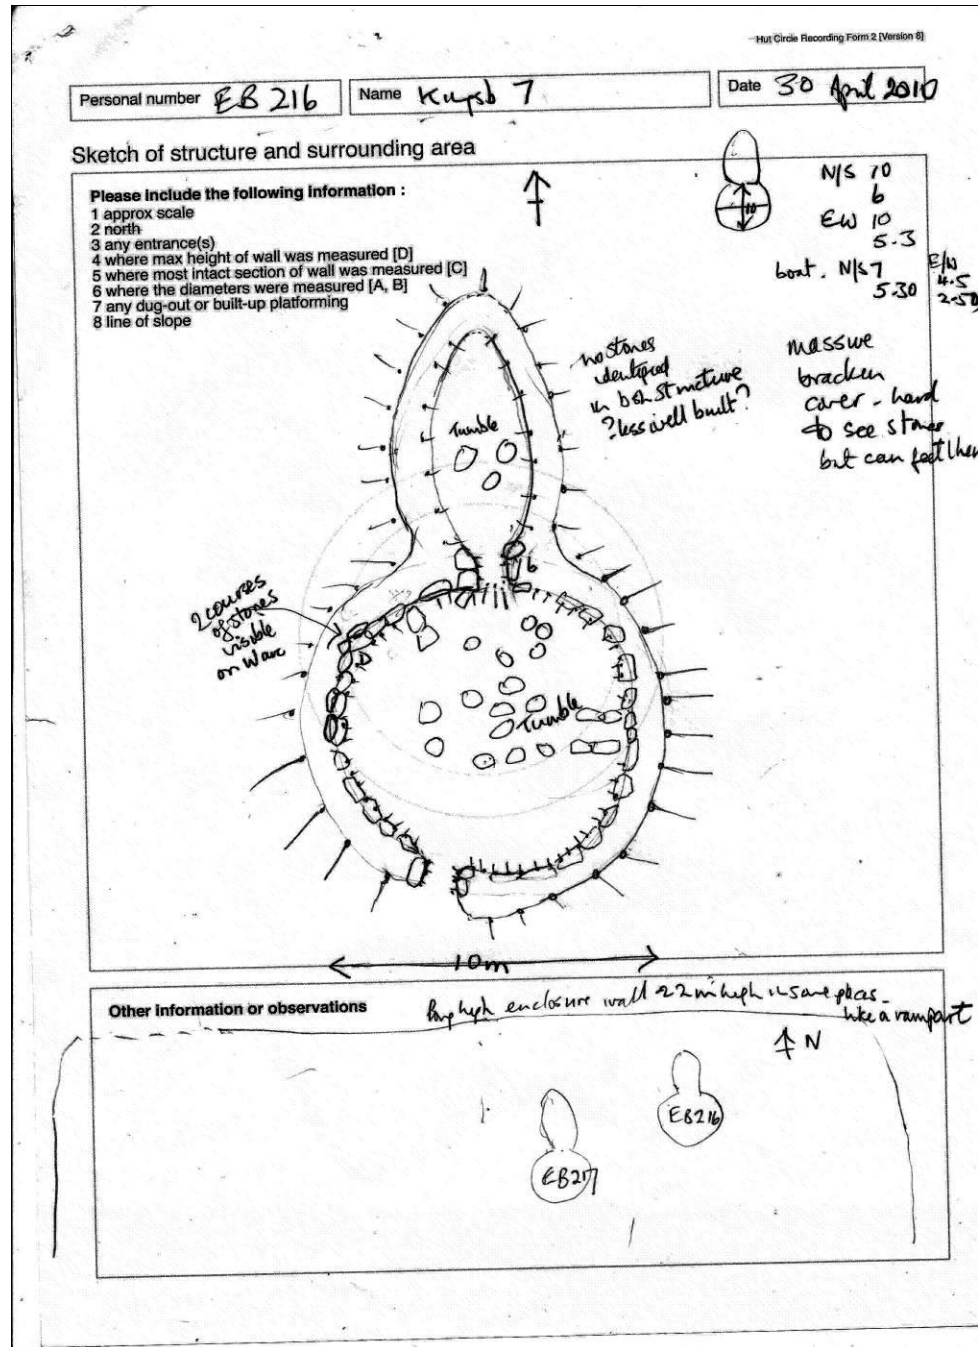 Hut Circle Recording Form 2 [Version 8]
Personal number EB 216
Name 7
Date 30 April 2010
Sketch of structure and surrounding area
Please include the following information :
1 approx scale
2 north
3 any entrance(s)
4 where max height of wall was measured [D]
5 where most intact section of wall was measured [C]
6 where the diameters were measured [A, B]
7 any dug-out or built-up platforming
8 line of slope
10
N/S 10
6
E W 10
5.3
boat. N/S 7
5.30
E/W
4.5
2.50
no stones
identified
in structure
? less well built?
massive
bracken
cover - hard
to see stones
but can feel them
Tumble
2 courses
of stones
visible
on
b
D
Tumble
10m
Other information or observations
high enclosure wall 2m high in some places -
like a rampart
N
EB216
EB217